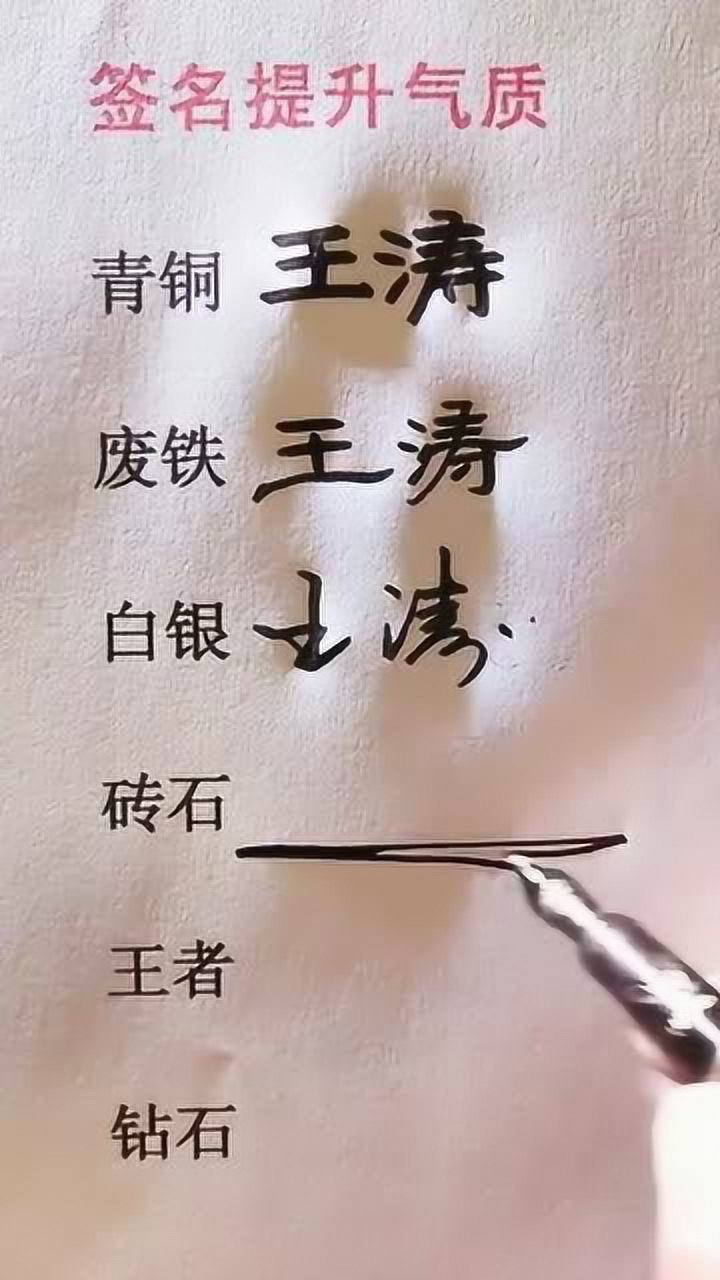 签名提升气质
青铜 王涛
废铁 王涛
白银 王涛
砖石
王者
钻石